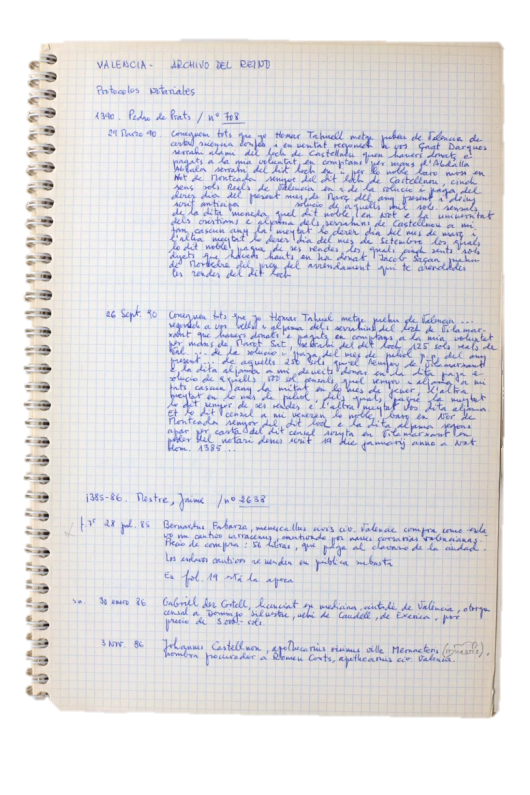 VALENCIA - ARCHIVO DEL REINO
Protocolos Notariales
1390. Pedro de Prats / nº 708
29 Marzo 90. Coneguen tots que yo Homar Tahuell metge juheu de Valencia de
certa sciencia confes i en veritat regonech a vos Çaat Barques
serrahi alami del loch de Castellnou quem haveu donats e
pagats a ma voluntat, en comptans per mans d'Abdalla
serrahi del dit loch en e per lo noble baro mossen
Not de Montcada senyor del dit loch de Castellnou, cinch
sous Reals de Valencia en e de la solucio e paga del
derer dia del present mes de Març del any present e deius
scrit anticipa solucio de aquells mil sols censals
de la dita moneda quel dit noble en Not e la universitat
dels crestians e aljama dels serrahins de Castellnou a mi
fan cascun any la meytat lo derer dia del mes de març e
l'altra meytat lo derer dia del mes de setembre los quals
lo dit noble pague de ses rendes los quals cinch cents sols
dejets que haveu hauts en ha donat Jacob Saçan juheu
de Morvedre del preu del arrendament que te
les rendes del dit loch
26 Sept 90 Coneguen tots que yo Homar Tahuel metge juheu de Valencia ...
regonech a vos vells e aljama dels serrahins del loch de Vilamar-
xant que haveu donats e pagats en comptans a la mia voluntat
per mans de serrahi del dit loch 125 sols reals de
Val ... de la solucio e paga del mes de juhol p.p. del any
present e de aquells 250 sols quel senyor de Vilamarxant
e la dita aljama a mi devets donar en la dita paga e
solucio de aquells sol censals quel senyor e aljama a mi
fets cascun any la mitat en lo mes de jener, e l'altra
meytat en lo mes de juhol, dels quals pague la meytat
lo dit senyor de ses rendes e l'altra meytat vos dita aljama
Et lo dit censal a mi veneren lo noble baro en Not de
Montcada senyor del dit loch e la dita aljama segons
apar per carta del dit censal scripta en Vilamarxant en
poder del notari deius scrit 19 die januarij anno a Nat.
Dom. 1385 ...
1385-86. Mestre, Jaime / nº 2638
f. 7º 28 jul. 85 Bernardus menescallus civis civ. Valencie compra como
un cautivo sarraceno, cautivado por naves corsarias valencianas.
Precio de compra: 56 libras, que paga al clavario de la ciudad.
Los esclavos cautivos se venden en pública subasta
En fol. 19 está la apoca
s.n. 30 enero 86 Gabriel dez Cotell, licenciat en medicina, ciutadà de Valencia, otorga
censal a Domingo Silvestre, vehi de Caudell, de Exerica, por
precio de 5.000 sols.
3 Nov. 86 Johannes Castellnou, apothecarius vicinus ville
nombra procurador a Romeu Corts, apothecarius civ. Valencia.